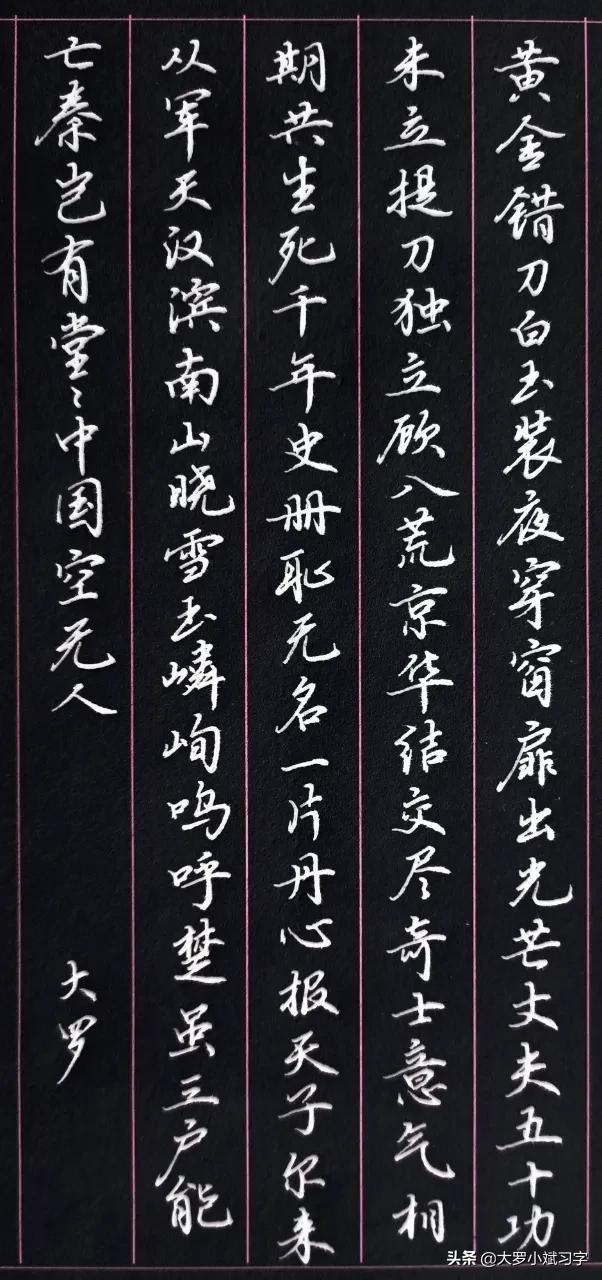 黄金错刀白玉装夜穿窗扉出光芒丈夫五十功
未立提刀独立顾八荒京华结交尽奇士意气相
期共生死千年史册耻无名一片丹心报天子尔来
从军天汉滨南山晓雪玉嶙峋呜呼楚虽三户能
亡秦岂有堂〻中国空无人
大罗
头条 @大罗小斌习字